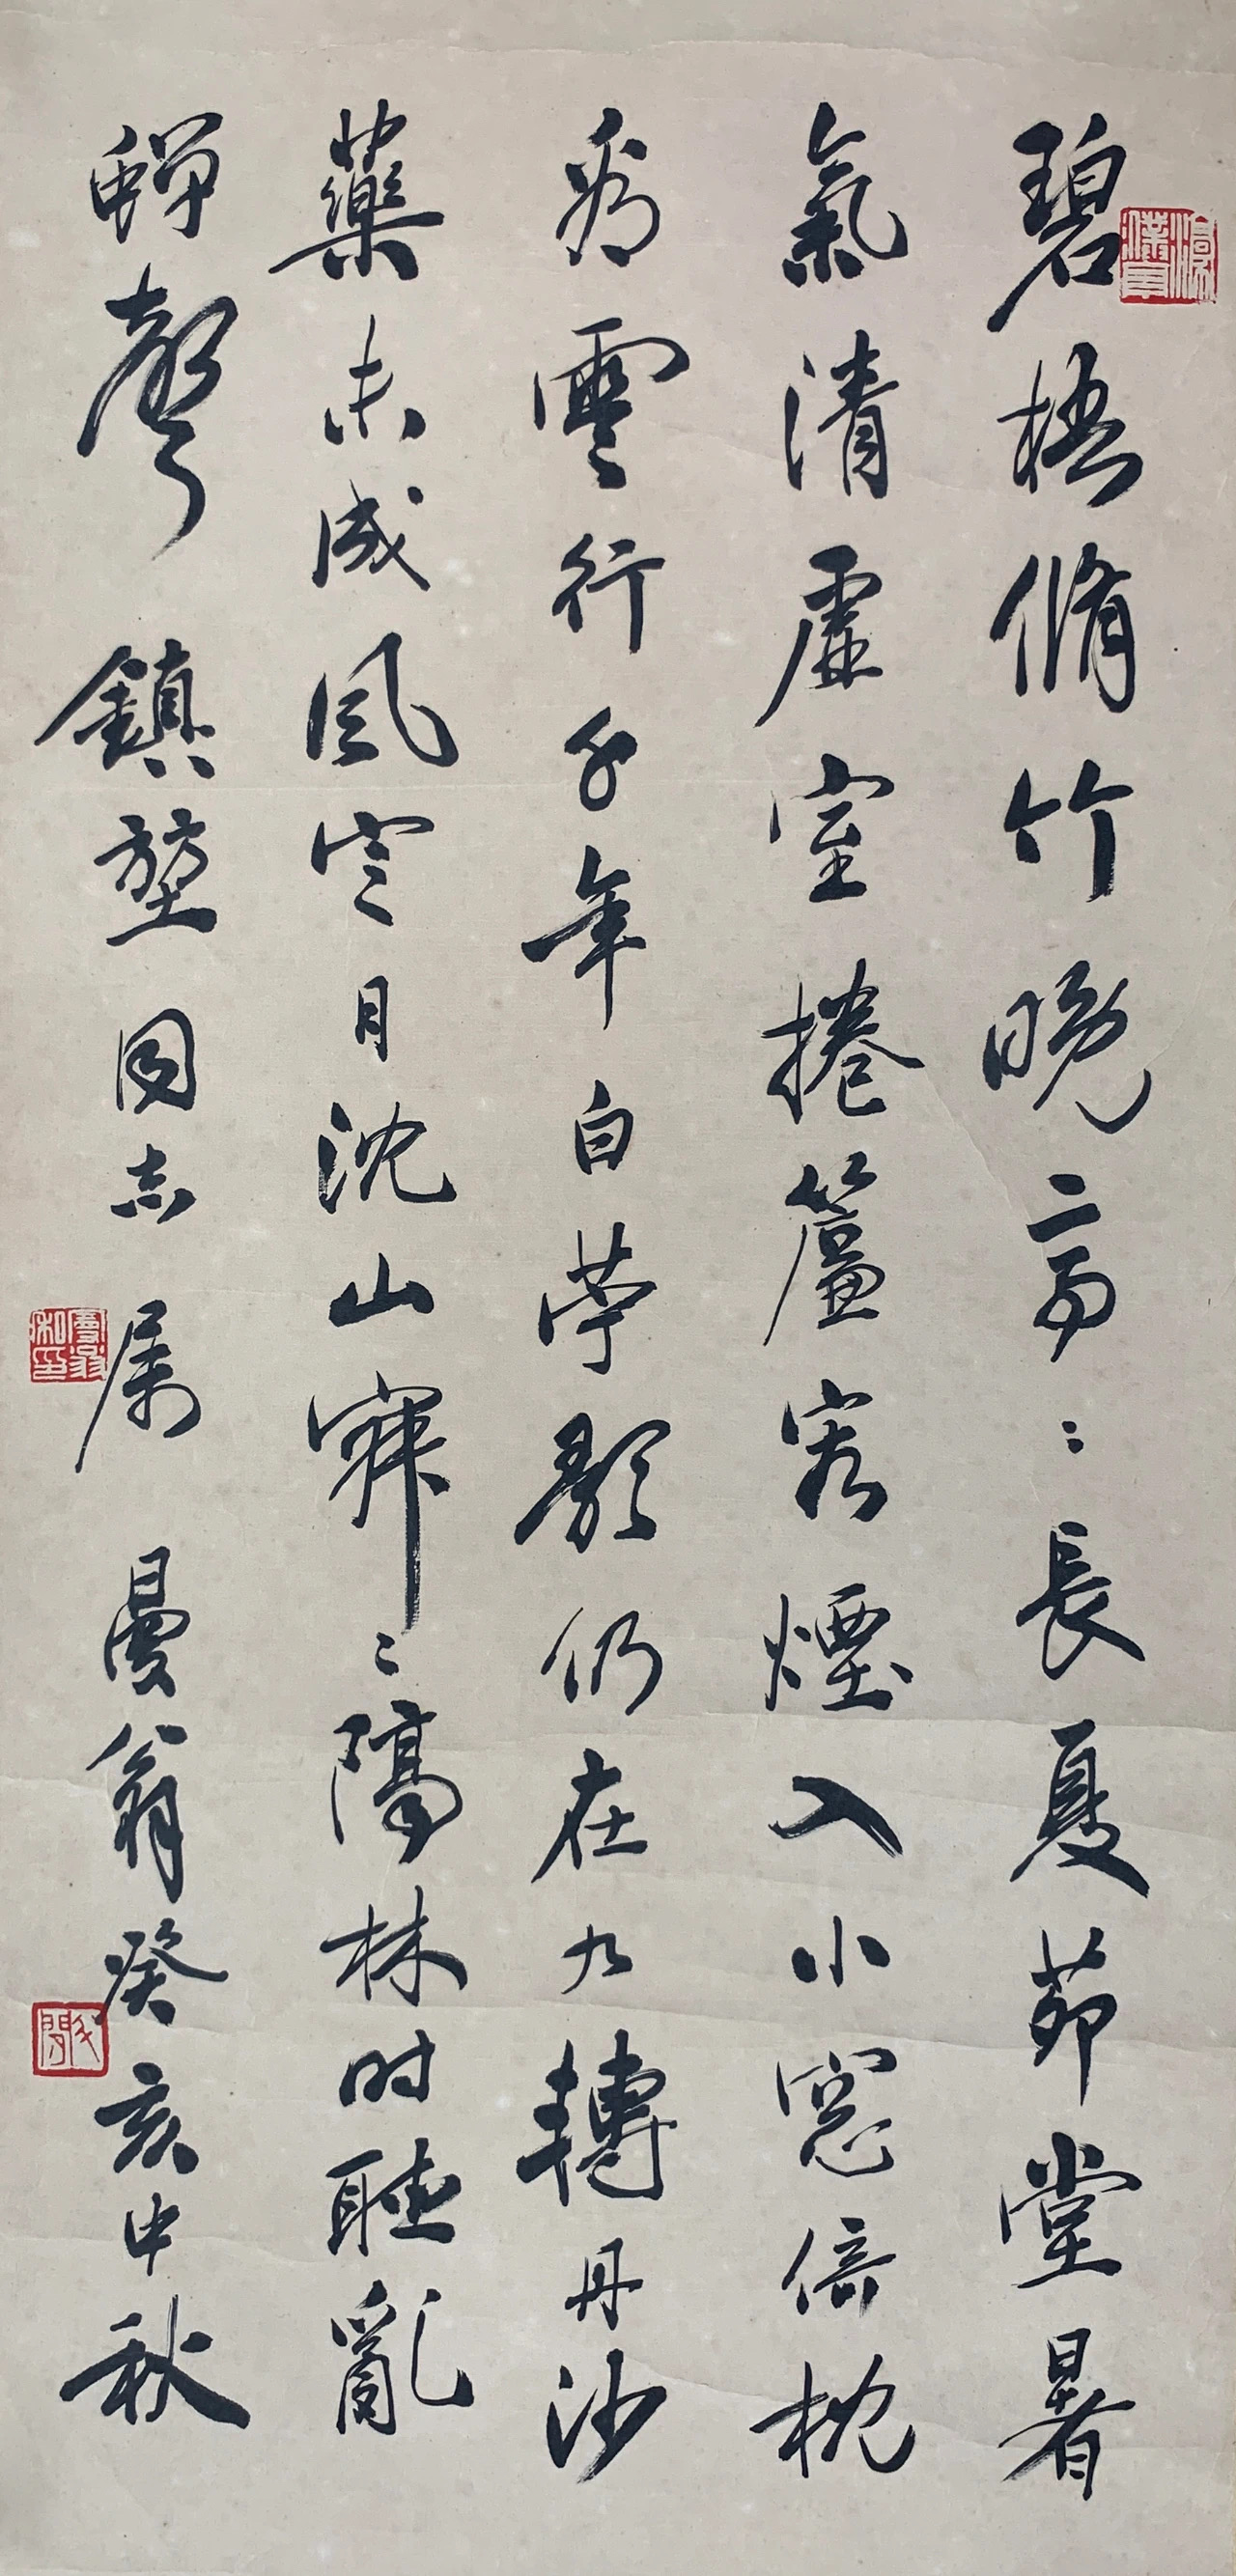 碧梧脩竹晚亭=長夏茆堂暑
氣清虛室捲簾容煙入小窓倚枕
看雲行千年白苧歌仍在九轉丹沙
藥未成風定月沈山寂=隔林时聽亂
蟬聲 鎮堃同志属 曼翁癸亥中秋